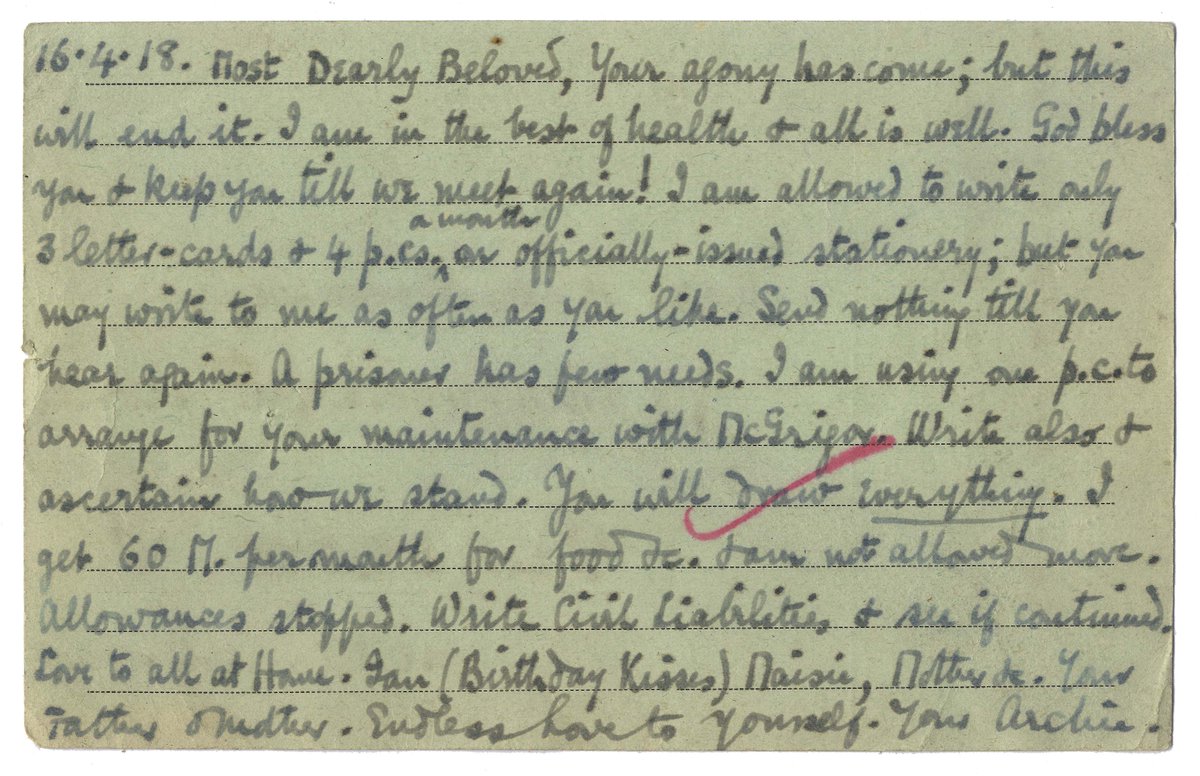 16.4.18. Most Dearly Beloved, Your agony has come; but this
will end it. I am in the best of health & all is well. God bless
you & keep you till we meet again! I am allowed to write only
a month
3 letter-cards & 4 p.cs. on officially-issued stationery; but you
may write to me as often as you like. Send nothing till you
hear again. A prisoner has few needs. I am using one p.c. to
arrange for your maintenance with McGrigor. Write also &
ascertain how we stand. You will draw everything. I
get 60 M. per month for food &c. & am not allowed more.
Allowances stopped. Write Civil Liabilities & see if continued.
Love to all at Home. Ian (Birthday Kisses) Maisie, Mother &c. Your
Father & Mother. Endless Love to yourself. Your Archie.